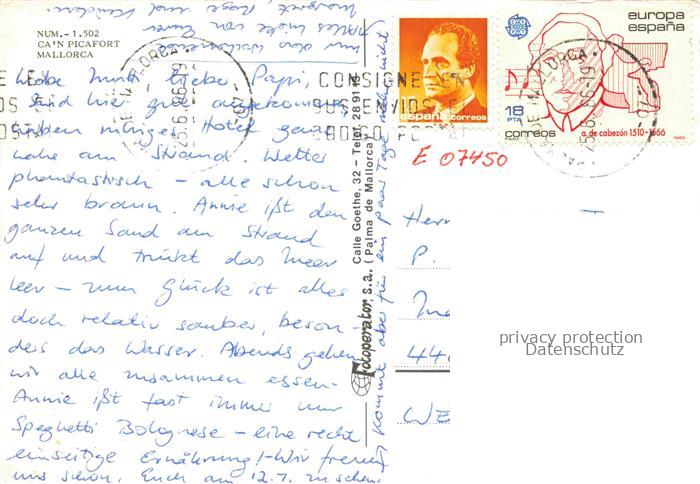 NUM. - 1.502
CA'N PICAFORT
MALLORCA
Liebe Mutti, lieber Papi,
sind hier gut angekommen,
haben ruhiges Hotel ganz
nahe am Strand. Wetter
phantastisch - alle schon
sehr braun. Annie ißt den
ganzen Sand am Strand
auf und trinkt das Meer
leer - zum Glück ist alles
doch relativ sauber, beson-
ders das Wasser. Abends gehen
wir alle zusammen essen -
Annie ißt fast immer nur
Spaghetti Bolognese - eine recht
einseitige Ernährung! - Wir freuen
uns schon, Euch am 12.7. zu sehen.
Kommt aber für ein paar Tage
Alles Liebe von Euren
Margret, und
Fotoperator, s.a.
Calle Goethe, 32 - Telef. 28 91 1
(Palma de Mallorca)
CONSIGNE EN
SUS ENVIOS EL
CODIGO POSTAL
25.6.86-19
españa correos
europa
españa
18
PTA
correos
a. de cabezón 1510-1566
1985
MALLORCA
25.6.86-19
E 07450
Herr
P.
440
WE
privacy protection
Datenschutz